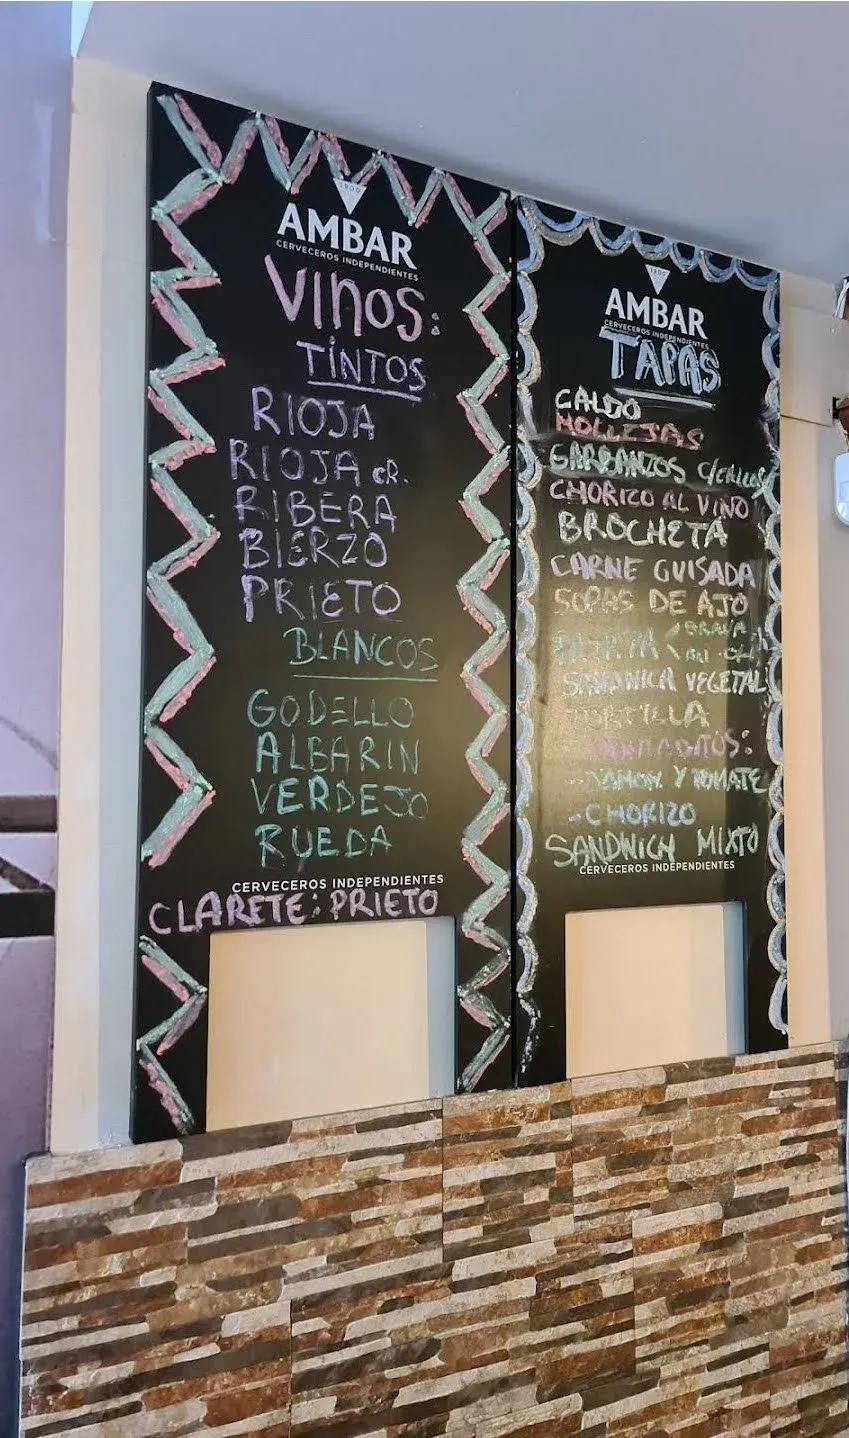 1900
AMBAR
CERVECEROS INDEPENDIENTES
VINOS:
TINTOS
RIOJA
RIOJA CR.
RIBERA
BIERZO
PRIETO
BLANCOS
GODELLO
ALBARIN
VERDEJO
RUEDA
CERVECEROS INDEPENDIENTES
CLARETE: PRIETO
1900
AMBAR
CERVECEROS INDEPENDIENTES
TAPAS
CALDO
MOLLEJAS
GARBANZOS C/CALLOS
CHORIZO AL VINO
BROCHETA
CARNE GUISADA
SOPAS DE AJO
BRAVA
VEGETAL
TORTILLA
- JAMON Y TOMATE
- CHORIZO
SANDWICH MIXTO
CERVECEROS INDEPENDIENTES